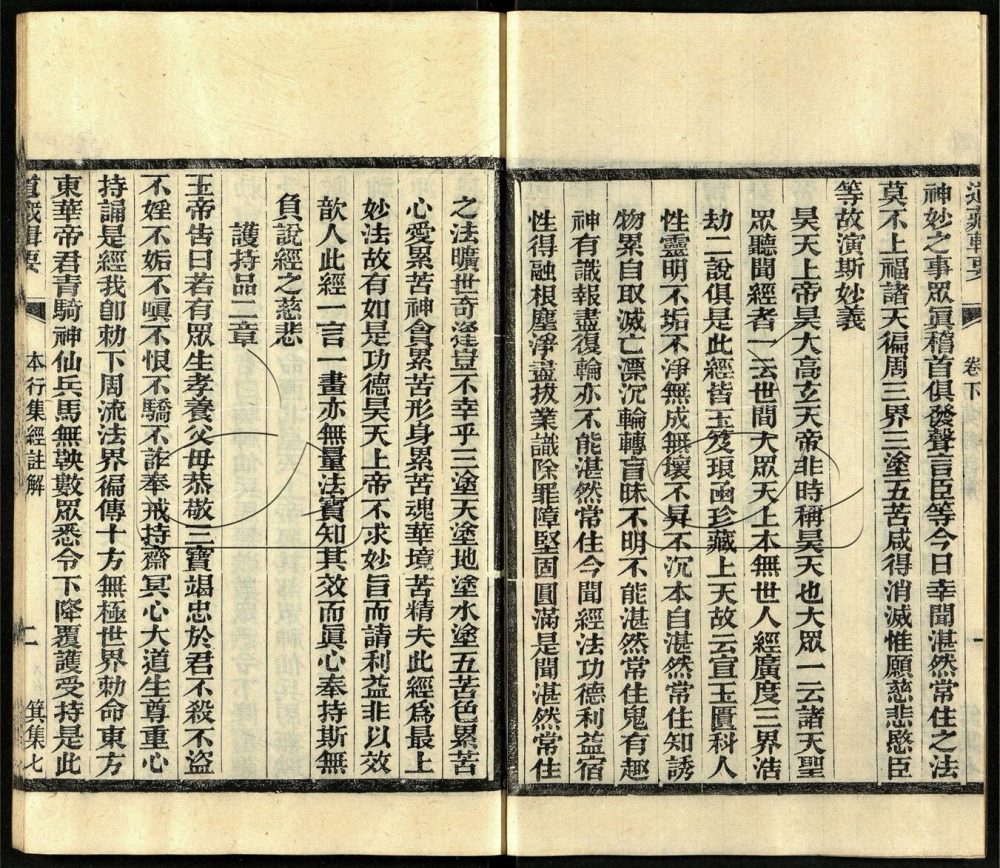 道藏輯要 卷下 一
神妙之事眾眞稽首俱發聲言臣等今日幸聞湛然常住之法
莫不上福諸天徧周三界三塗五苦咸得消滅惟願慈悲愍臣
等故演斯妙義
昊天上帝昊大高玄天帝非時稱昊天也大眾一云諸天聖
眾聽聞經者一云世間大眾天上本無世人經廣度三界浩
劫二說俱是此經皆玉笈琅函珍藏上天故云宣玉匱科人
性靈明不垢不淨無成無壞不昇不沉本自湛然常住知誘
物累自取滅亡漂沉輪轉盲昧不明不能湛然常住鬼有趣
神有識報盡復輪亦不能湛然常住今聞經法功德利益宿
性得融根塵淨盡拔業識除罪障堅固圓滿是聞湛然常住
之法曠世奇逢豈不幸乎三塗天塗地塗水塗五苦色累苦
心愛累苦神貪累苦形身累苦魂華境苦精夫此經爲最上
妙法故有如是功德昊天上帝不求妙旨而請利益非以效
歆人此經一言一畫亦無量法寶知其效而眞心奉持斯無
負說經之慈悲
護持品二章
玉帝告曰若有眾生孝養父母恭敬三寶竭忠於君不殺不盜
不婬不妬不嗔不恨不驕不詐奉戒持齋冥心大道生尊重心
持誦是經我卽勅下周流法界徧傳十方無極世界勅命東方
東華帝君靑騎神仙兵馬無鞅數眾悉令下降覆護受持是此
道藏輯要 本行集經註解 二 箕集七